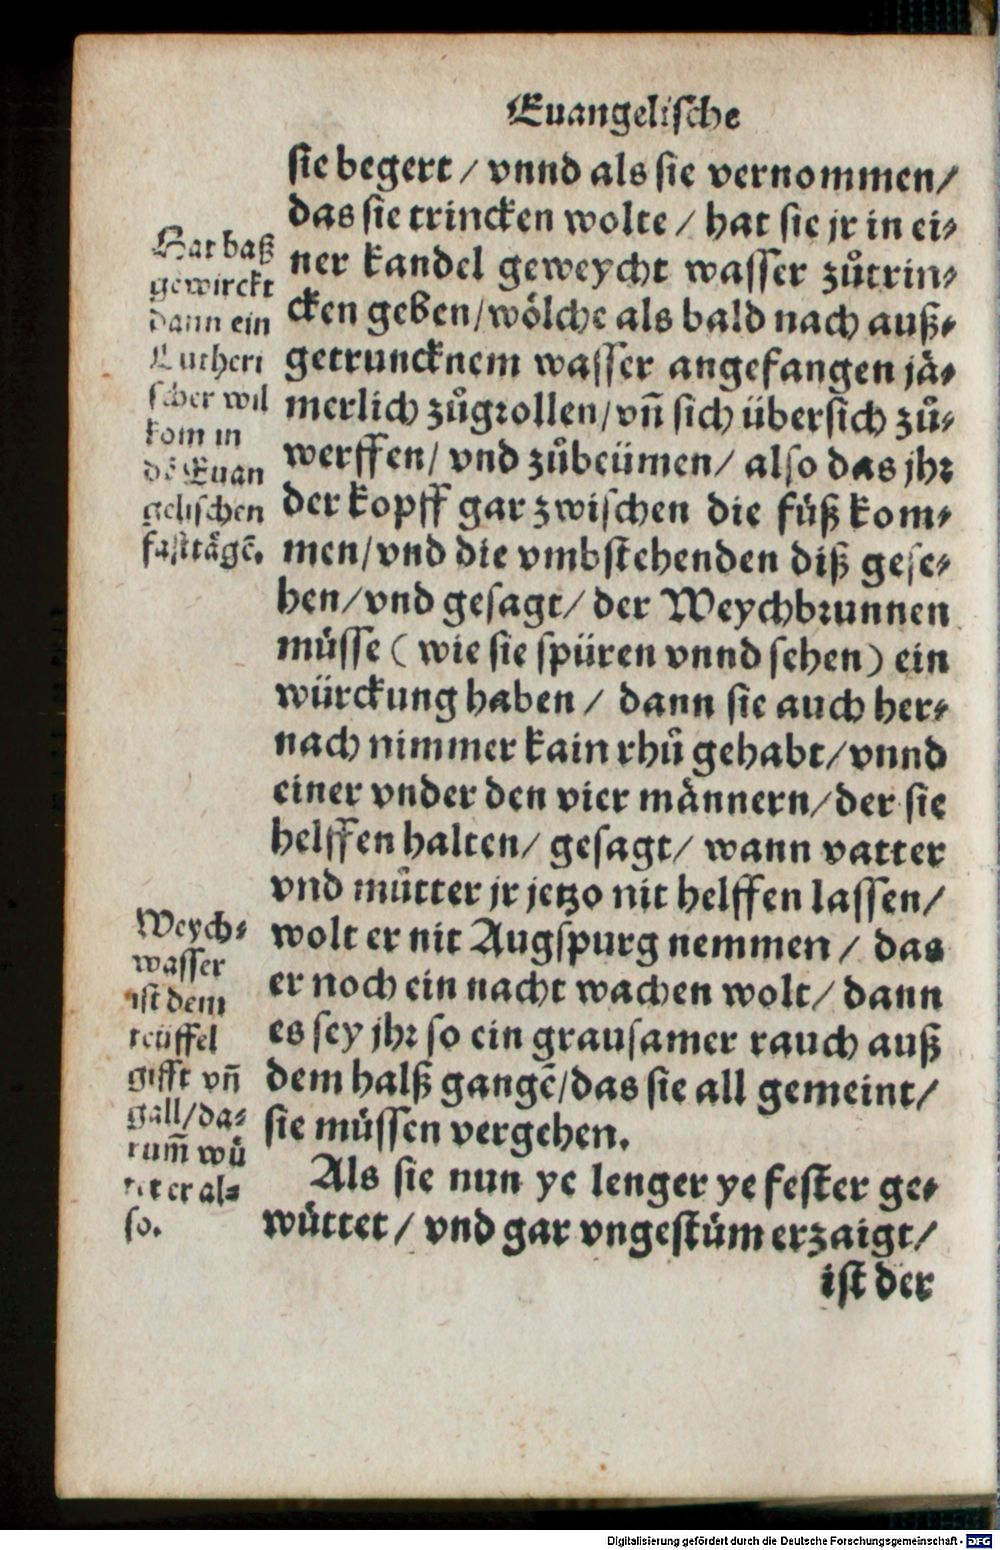 Euangelische
sie begert / vnnd als sie vernommen/
das sie trincken wolte / hat sie jr in ei-
ner kandel geweycht wasser zůtrin-
cken geben/wölche als bald nach auß-
getruncknem wasser angefangen jä-
merlich zůgrollen/vñ sich übersich zů-
werffen/ vnd zůbeümen/ also das jhr
der kopff gar zwischen die füß kom-
men/vnd die vmbstehenden diß gese-
hen/vnd gesagt/ der Weychbrunnen
müsse ( wie sie spüren vnnd sehen ) ein
würckung haben / dann sie auch her-
nach nimmer kain rhů gehabt/vnnd
einer vnder den vier männern/der sie
helffen halten/ gesagt/ wann vatter
vnd můtter jr jetzo nit helffen lassen/
wolt er nit Augspurg nemmen / das
er noch ein nacht wachen wolt/ dann
es sey jhr so ein grausamer rauch auß
dem halß gangē/das sie all gemeint/
sie müssen vergehen.
Als sie nun ye lenger ye fester ge-
wüttet / vnd gar vngestüm erzaigt/
ist der
Hat baß
gewirckt
dann ein
Lutheri
scher wil
kom in
dē Euan
gelischen
fasttägē.
Weych-
wasser
ist dem
teüffel
gifft vñ
gall/da-
rum̄ wü
tet er al-
so.
Digitalisierung gefördert durch die Deutsche Forschungsgemeinschaft - DFG